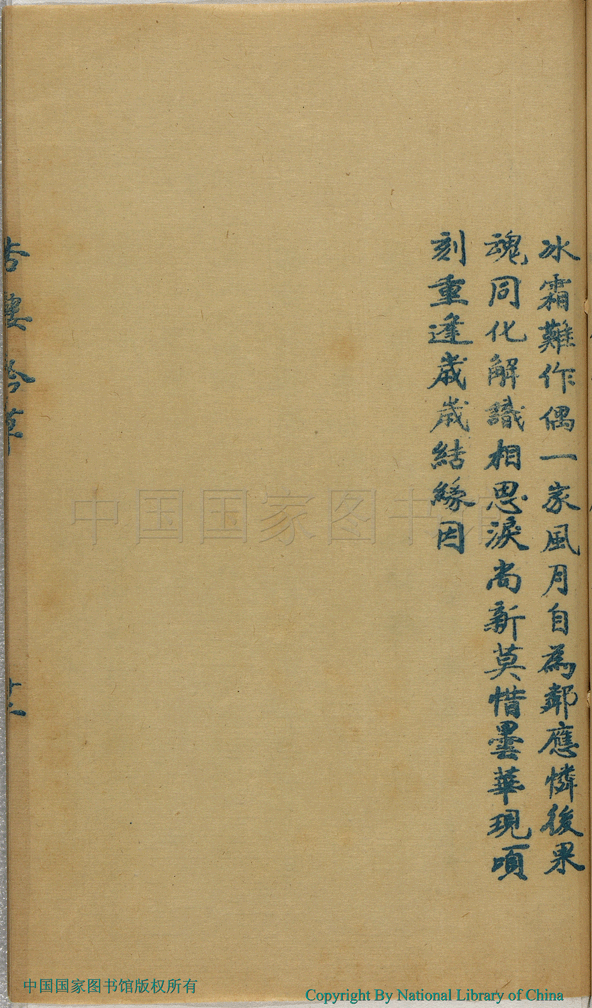 冰霜難作偶一家風月自為鄰應憐後果
魂同化解識相思淚尚新莫惜曇華現頃
刻重逢歲歲結緣因
中国国家图书馆
中国国家图书馆版权所有
Copyright By National Library of China